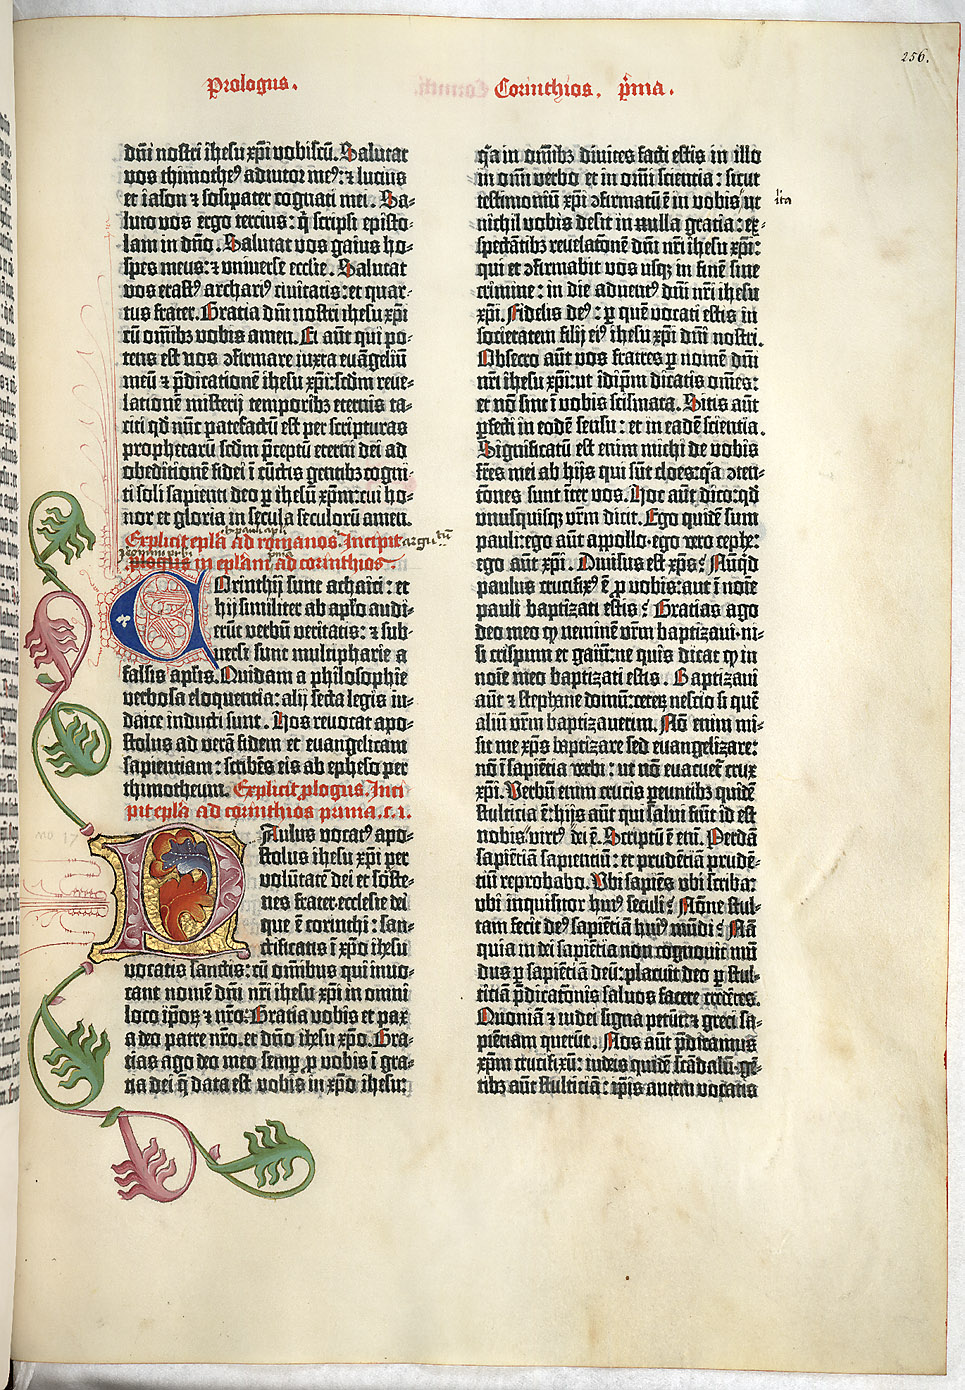 256.
Prologus.
Corinthios. p̄ma.
dn̄i nostri ihesu xp̄i vobiscū. Salutat
vos thimotheꝰ adiutor meꝰ: ⁊ lucius
et iason ⁊ sosipater cognati mei. Sa-
luto vos ergo tercius: q̄ scripsi episto-
lam in dn̄o. Salutat vos gaius ho-
spes meus: ⁊ universe ecclie. Salutat
vos erastꝰ archariꝰ civitatis: et quar-
tus frater. Gratia dn̄i nostri ihesu xp̄i
cū om̄ibꝫ vobis amen. Ei aūt qui po-
tens est vos ꝯfirmare iuxta euāgeliū
meū ⁊ p̄dicationē ihesu xp̄i: scdm̄ reve-
lationē misterij temporibꝫ eternis ta-
citi qd̄ nūc patefactū est per scripturas
prophetarū scdm̄ p̄ceptū eterni dei ad
obeditionē fidei ī cūctis gentibꝫ cogni-
ti soli sapienti deo ꝑ ihesū xp̄m: cui ho-
nor et gloria in secula seculorū amen.
Explicit epl̄a ad romanos. Incipit argu tū
plogus in epl̄am ad corinthios.
Corinthij sunt achaici: et
hij similiter ab apl̄o audi-
erūt verbū veritatis: ⁊ sub-
uersi sunt multipharie a
falsis apl̄is. Quidam a philosophie
verbosa eloquentia: alij secta legis iu-
daice inducti sunt. Hos revocat apo-
stolus ad verā fidem et euangelicam
sapientiam: scribēs eis ab epheso per
thimotheum. Explicit plogus. Inci
pit epl̄a ad corinthios prima. c. i.
PAulus vocatꝰ apo-
stolus ihesu xp̄i per
volūtatē dei et soste-
nes frater: ecclesie dei
que ē corinthi: san-
ctificatis ī xp̄o ihesu
vocatis sanctis: cū om̄ibus qui invo-
cant nomē dn̄i nr̄i ihesu xp̄i in omni
loco ip̄oꝝ ⁊ nr̄o. Gratia vobis et pax
a deo patre nr̄o. et dn̄o ihesu xp̄o. Gra-
tias ago deo meo semꝑ ꝓ vobis ī gra-
tia dei q̄ data est vobis in xp̄o ihesu:
q̄a in om̄ibꝫ divites facti estis in illo
in om̄i verbo et in om̄i scientia: sicut
testimoniū xp̄i ꝯfirmatū ē in vobis ut ita
nichil vobis desit in nulla gratia: ex-
spectātibꝫ revelatōnē dn̄i nr̄i ihesu xp̄i:
qui et ꝯfirmabit vos usqꝫ in finē sine
crimine: in die adventꝰ dn̄i nr̄i ihesu
xp̄i. Fidelis deꝰ: ꝑ quē vocati estis in
societatem filij eiꝰ ihesu xp̄i dn̄i nostri.
Obsecro aūt vos fratres ꝑ nomē dn̄i
nr̄i ihesu xp̄i: ut idip̄m dicatis om̄es:
et nō sint ī vobis scismata. Sitis aūt
ꝑfecti in eodē sensu: et in eadē scientia.
Significatū est enim michi de vobis
fr̄es mei ab hijs qui sūt cloes: q̄a ꝯten-
tōnes sunt inter vos. Hoc aūt dico: qd̄
unusquisqꝫ vr̄m dicit. Ego quidē sum
pauli: ego aūt appollo. ego vero cephe:
ego aūt xp̄i. Divisus est xp̄s? Nūqd̄
paulus crucifixꝰ ē ꝓ vobis: aut ī noīe
pauli baptizati estis? Gratias ago
deo meo ꝙ neminē vr̄m baptizavi. ni-
si crispum et gaiū: ne quis dicat ꝙ in
noīe meo baptizati estis. Baptizavi
aūt ⁊ stephane domū: ceterꝫ nescio si quē
aliū vr̄m baptizaverim. Nō enim mi-
sit me xp̄s baptizare sed euangelizare:
nō ī sapiētia verbi: ut nō evacuet̄ crux
xp̄i. Verbū enim crucis pereuntibꝫ quidē
stulticia ē: hijs aūt qui salvi fiūt id est
nobis virtꝰ dei ē. Scriptū ē eni. Perdā
sapiētiā sapientiū: et prudētiā prudē-
tiū reprobabo. Ubi sapiēs ubi scriba:
ubi inquisitor huiꝰ seculi? Nōne stul-
tam fecit deꝰ sapiētiā huiꝰ mūdi? Nā
quia in dei sapiētia non cognovit mū
dus ꝑ sapiētiā deū: placuit deo ꝑ stul-
ticiā p̄dicatōnis salvos facere credētes.
Quoniā ⁊ iudei signa petūt: ⁊ greci sa-
piētiam querūt. Nos aūt p̄dicamus
xp̄m crucifixū: iudeis quidē scādalū: gē-
tibꝫ aūt stulticiā: ip̄is autem vocatis